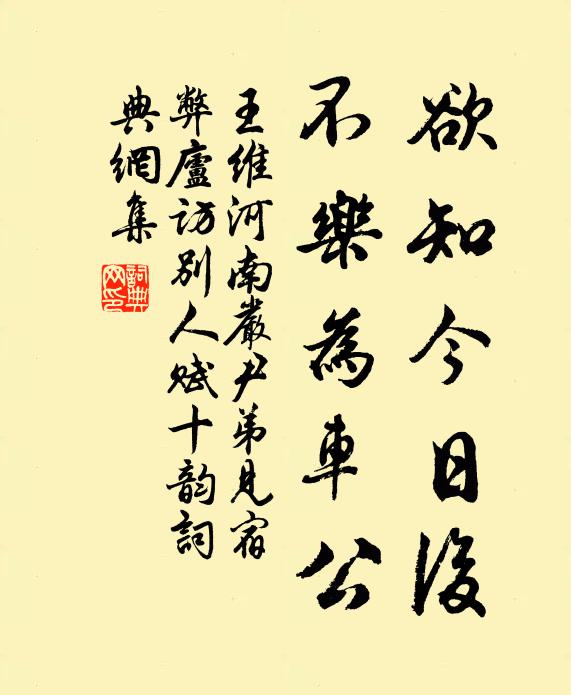 欲知今日後
不樂為車公
王維河南嚴尹弟見宿
弊廬訪別人賦十韵詞
典網集
詞典
网印